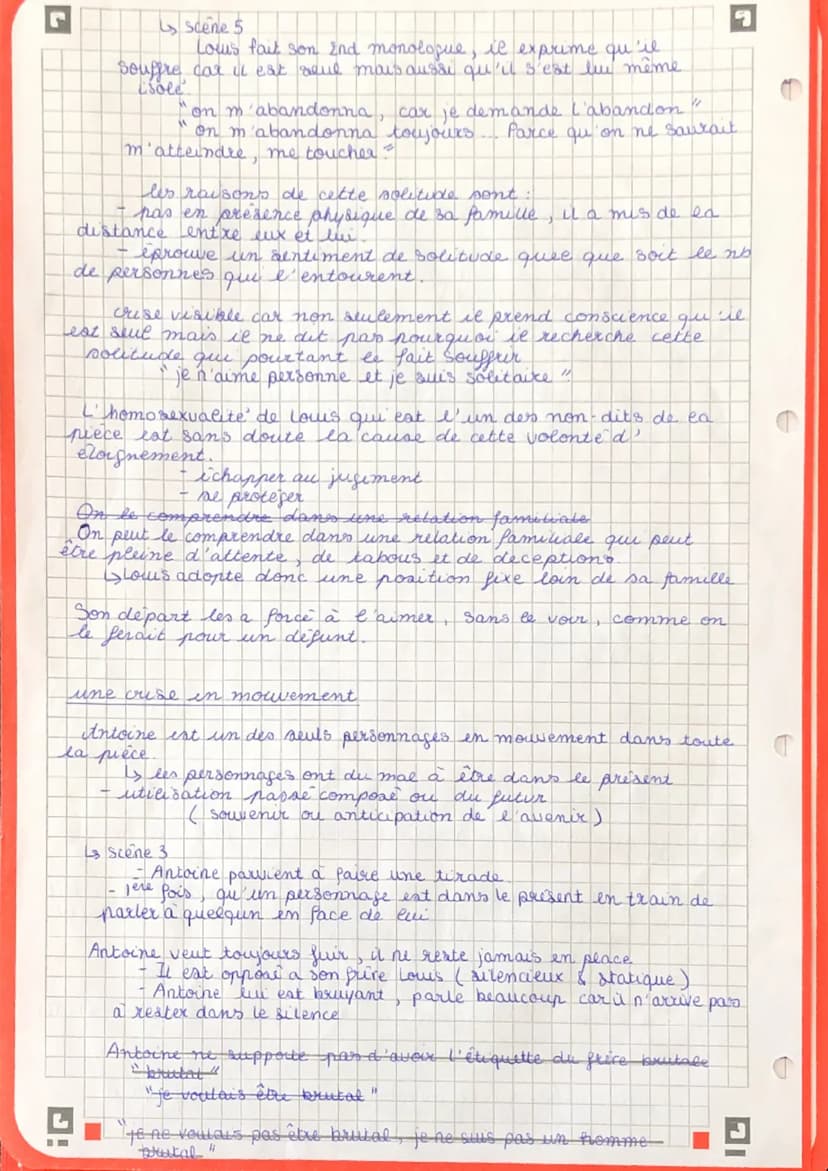 ↳ scène 5
Louis fait son 2nd monologue, il exprime qu'il
souffre car il est seul mais aussi qu'il s'est lui même
isolé.
"on m'abandonna, car je demande l'abandon"
"on m'abandonna toujours... Parce qu'on ne saurait
m'atteindre, me toucher."
les raisons de cette solitude sont :
- pas en présence physique de sa famille, il a mis de la
distance entre eux et lui.
- éprouve un sentiment de solitude quel que soit le nb
de personnes qui l'entourent.
crise visible car non seulement il prend conscience qu'il
est seul mais il ne dit pas pourquoi il recherche cette
solitude qui pourtant le fait souffrir
"je n'aime personne et je suis solitaire"
L'homosexualité de Louis qui est l'un des non-dits de la
pièce est sans doute la cause de cette volonté d'
éloignement.
- échapper au jugement
- se protéger
On le comprendre dans une relation familiale
On peut le comprendre dans une relation familiale qui peut
être pleine d'attente, de tabous et de déceptions.
↳ Louis adopte donc une position fixe loin de sa famille
Son départ les a forcé à l'aimer, sans le voir, comme on
le ferait pour un défunt.
une crise en mouvement
Antoine est un des seuls personnages en mouvement dans toute
la pièce.
↳ les personnages ont du mal à être dans le présent
- utilisation passé composé ou du futur
( souvenir ou anticipation de l'avenir )
↳ scène 3
- Antoine parvient à faire une tirade.
- 1ère fois, qu'un personnage est dans le présent en train de
parler à quelqun en face de lui
Antoine veut toujours fuir, il ne reste jamais en place
- Il est opposé à son frère Louis ( silencieux & statique )
- Antoine lui est bruyant, parle beaucoup car il n'arrive pas
à rester dans le silence
Antoine ne supporte pas d'avoir l'étiquette du frère brutale
"brutal"
"je voulais être brutal"
"je ne voulais pas être brutal, je ne suis pas un homme
brutal"